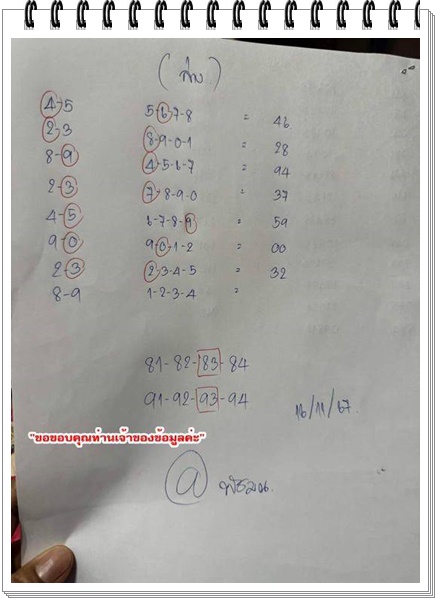 (ล่าง)
4-5 5-6-7-8 = 46
2-3 8-9-0-1 = 28
8-9 4-5-6-7 = 94
2-3 7-8-9-0 = 37
4-5 6-7-8-9 = 59
9-0 9-0-1-2 = 00
2-3 2-3-4-5 = 32
8-9 1-2-3-4 =
81-82-83-84
91-92-93-94
16/11/67.
"ขอขอบคุณท่านเจ้าของข้อมูลค่ะ"
@